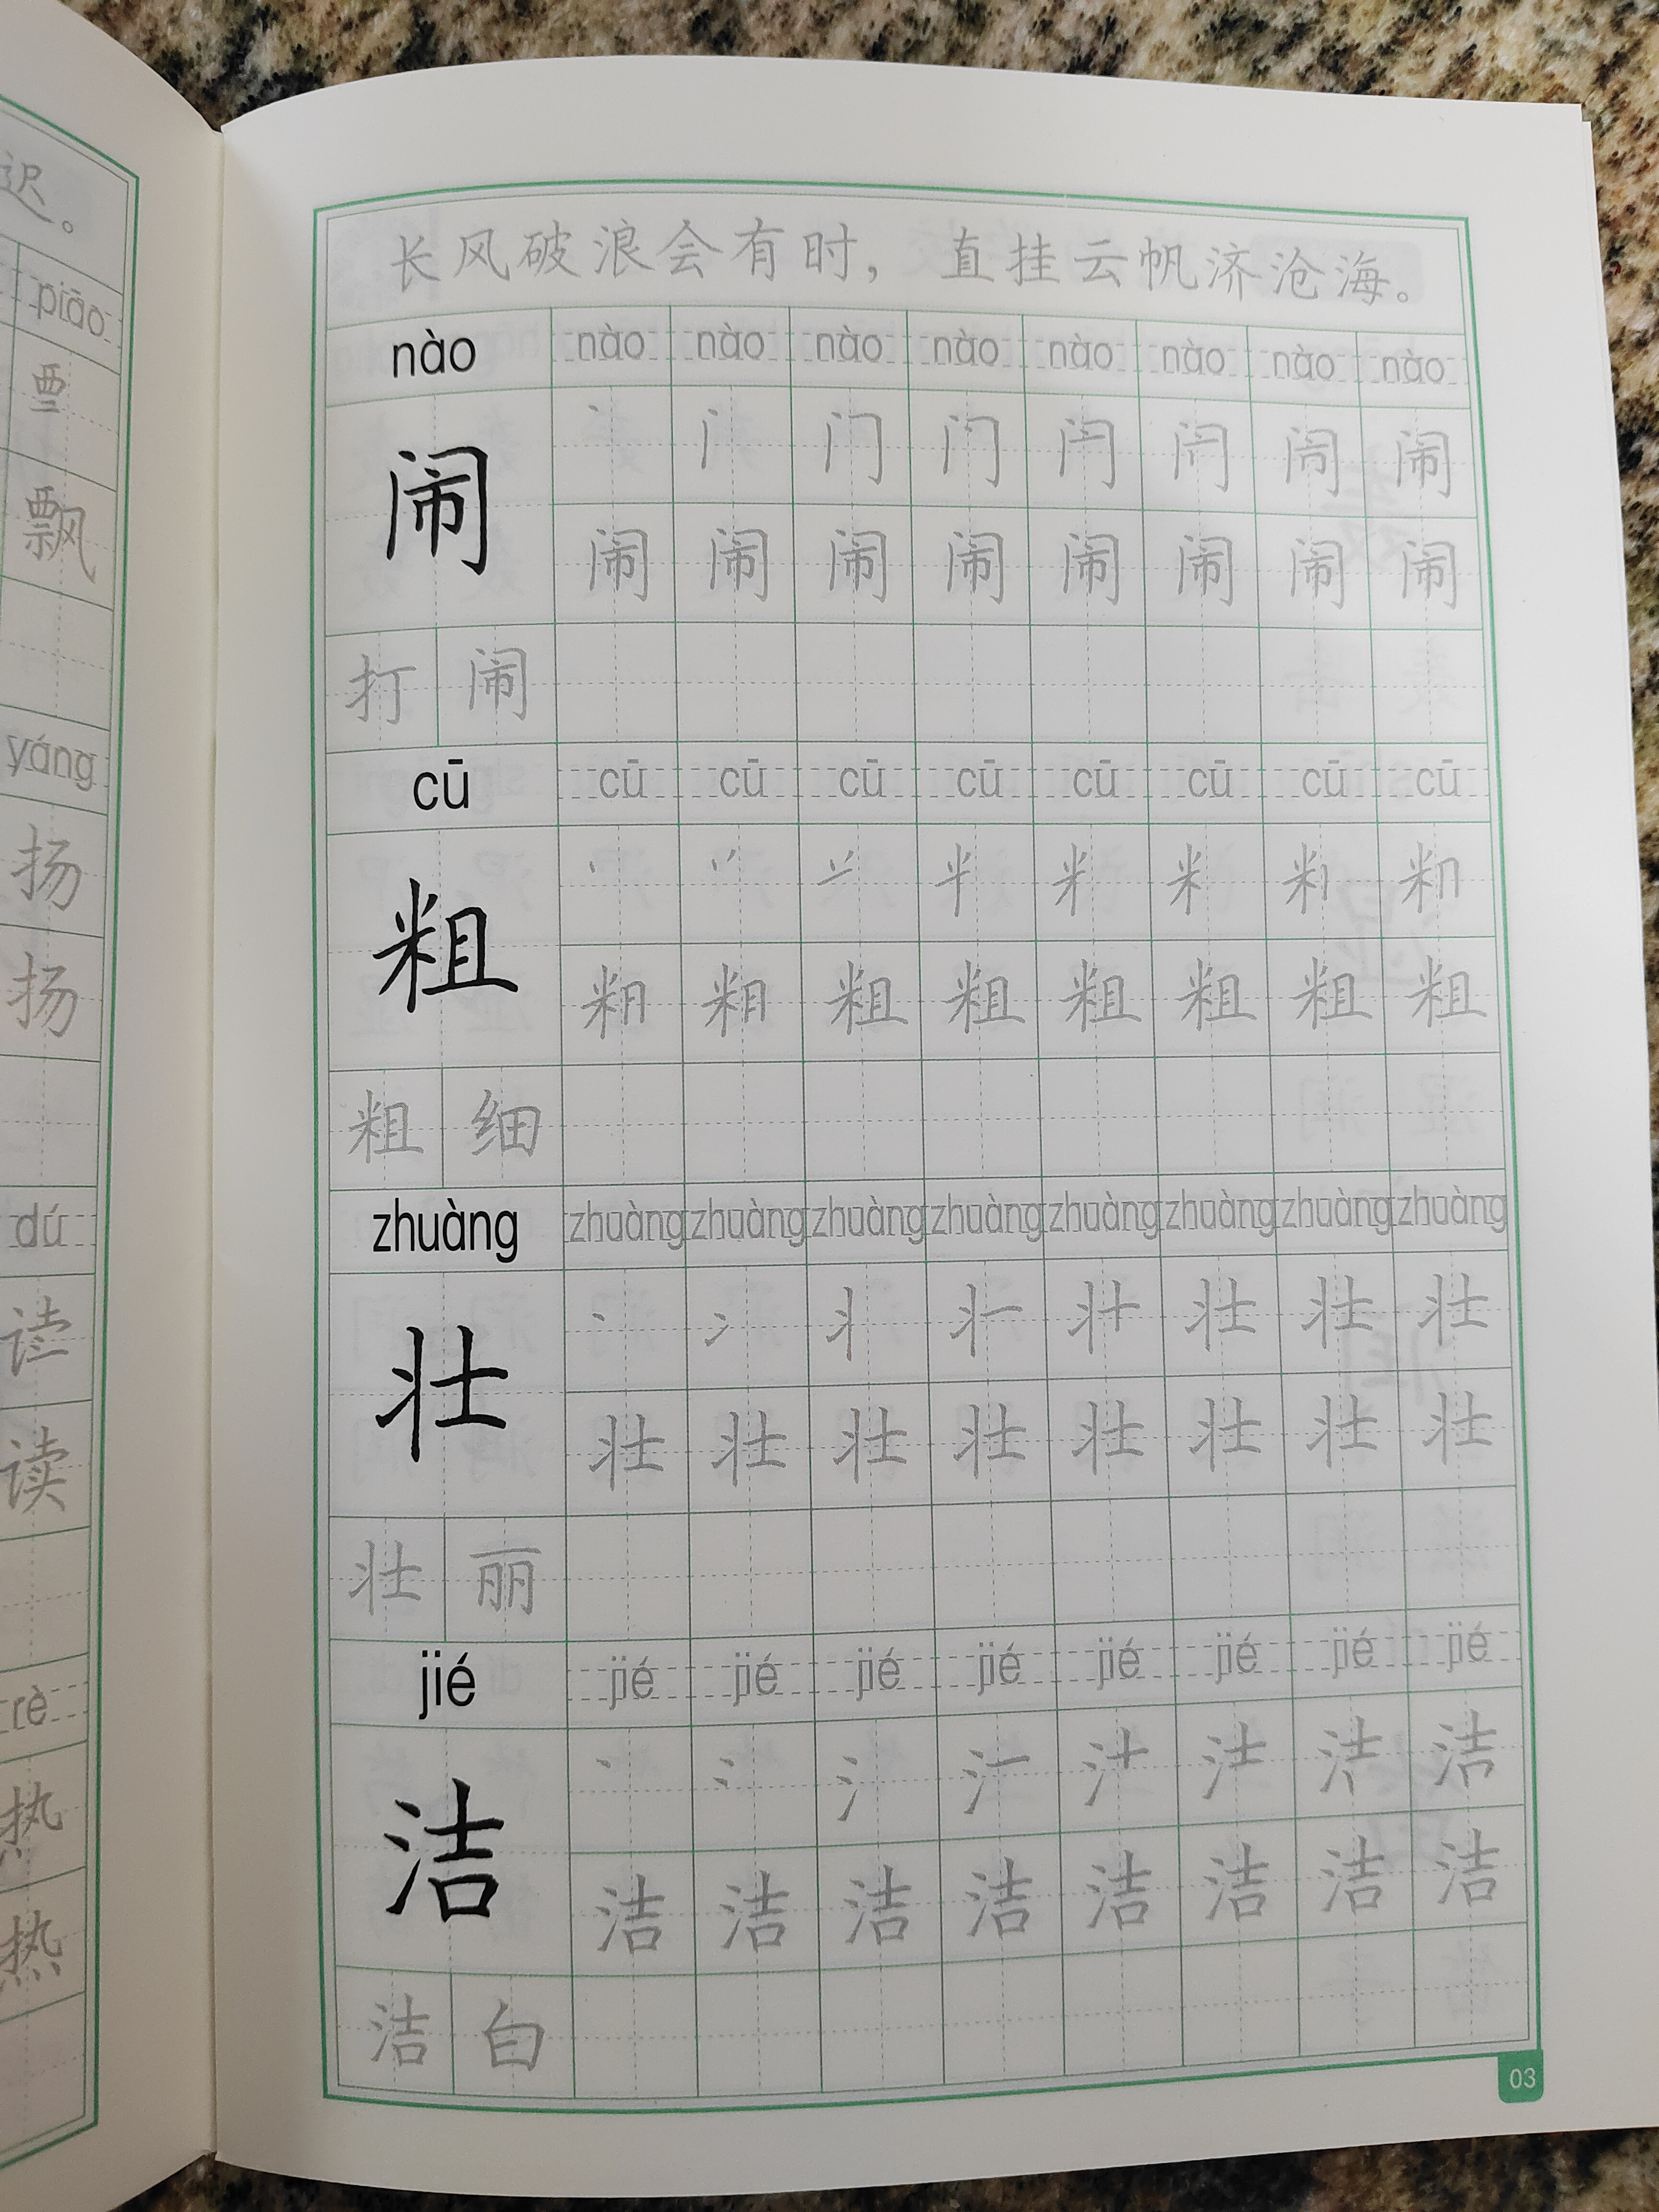 迟。
piāo
飘
yáng
扬
扬
dú
读
rè
热
热
长风破浪会有时，直挂云帆济沧海。
nào nào nào nào nào nào nào nào nào
闹
闹 闹 闹 闹 闹 闹 闹 闹
打 闹
cū cū cū cū cū cū cū cū cū
粗
粗 粗 粗 粗 粗 粗
粗 细
zhuàng zhuàng zhuàng zhuàng zhuàng zhuàng zhuàng zhuàng zhuàng
壮 壮 壮 壮
壮 壮 壮 壮 壮 壮 壮 壮
壮 丽
jié jié jié jié jié jié jié jié jié
洁 洁
洁 洁 洁 洁 洁 洁 洁 洁
洁 白
03